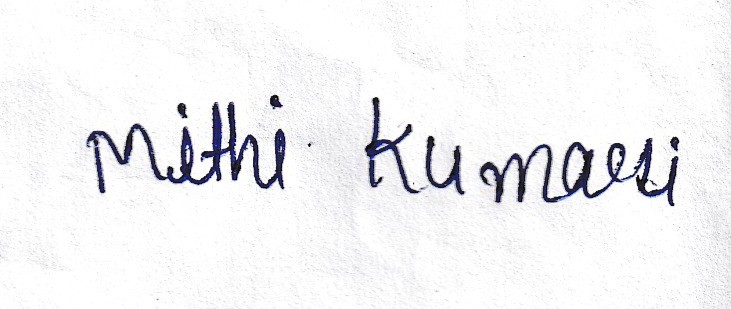 Mithi Kumari